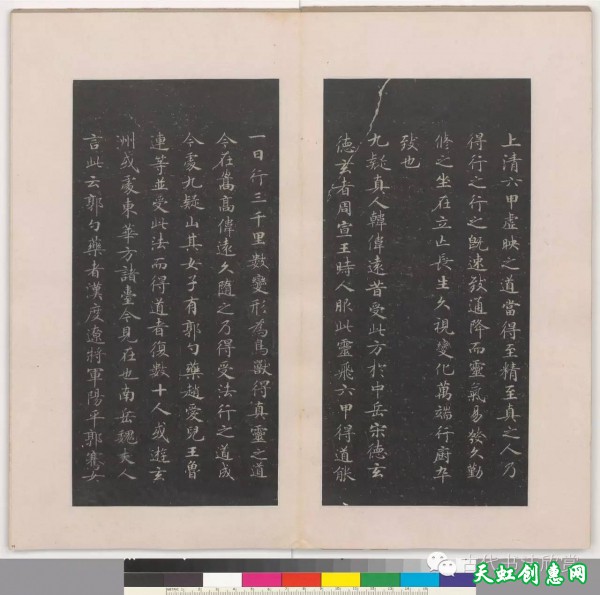 上清六甲虛映之道當得至精至真之人乃
得行之行之既速致通降而靈氣易發久勤
脩之坐在立亡長生久視變化萬端行廚卒
致也
九疑真人韓偉遠昔受此方於中岳宋德玄
德玄者周宣王時人服此靈飛六甲得道能
一日行三千里數變形為鳥獸得真靈之道
今在嵩高偉遠久隨之乃得受法行之道成
今處九疑山其女子有郭勺藥趙愛兒王魯
連等並受此法而得道者復數十人或遊玄
州或處東華方諸臺今見在也南岳魏夫人
言此云郭勺藥者漢度遼將軍陽平郭騫女
古代书法欣赏
天虹创惠网